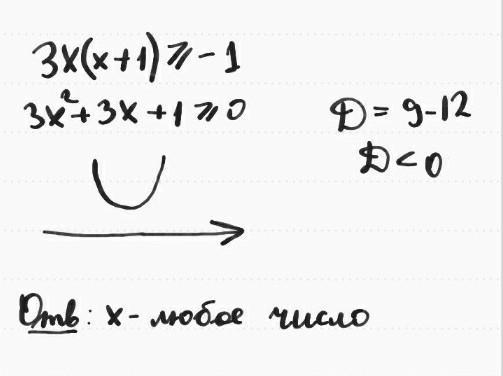 3x(x+1) ⩾ -1
3x²+3x+1 ⩾ 0
D = 9-12
D < 0
Отв: x - любое число